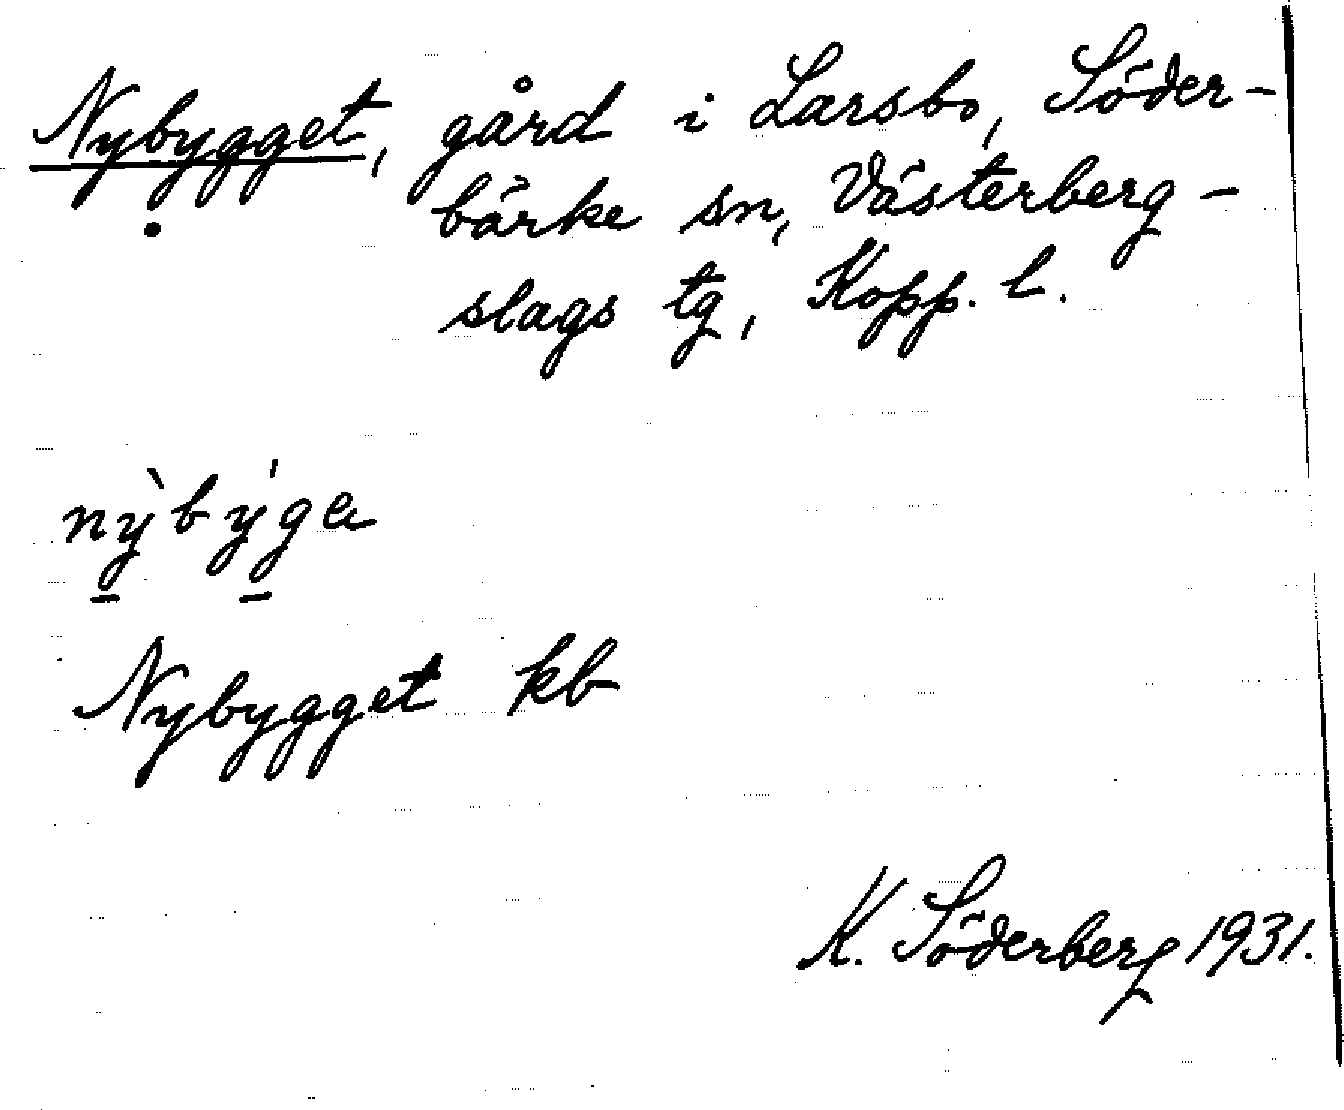 Nybygget, gård i Larsbo, Söder-
bärke sn, Västerberg-
slags tg, Kopp. l.
nỳbýga
Nybygget kb
K. Söderberg 1931.